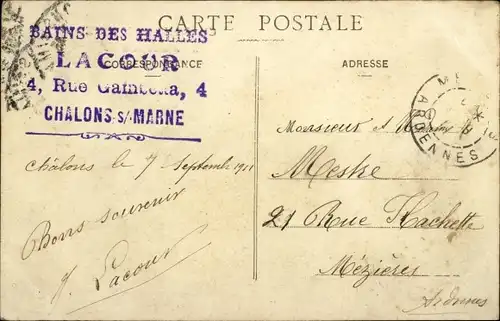 CARTE POSTALE
BAINS DES HALLES
LACOUR
4, Rue Gambetta, 4
CHALONS s/ MARNE
CORRESPONDANCE
ADRESSE
ARDENNES
Chalons le 7 Septembre 1911
Bons souvenir
Lacour
Monsieur et
Meske
21 Rue Hachette
Mézières
Ardennes